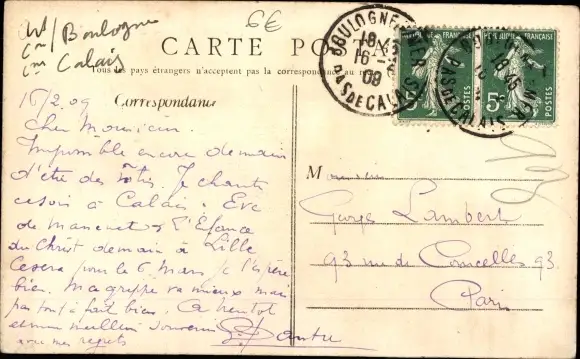 6€
Boulogne
Calais
CARTE PO
Tous les pays étrangers n'acceptent pas la correspondance au re
BOULOGNE MER
18 45
16 - 2
09
PAS DE CALAIS
FRANÇAISE
5c
POSTES
16/2 09
Correspondance
Cher Monsieur.
Impossible encore demain
d'être des vôtres. Je chante
ce soir à Calais. Eve
de Massenet & l'Enfance
du Christ demain à Lille
Ce sera pour le 6 Mars je l'espère
bien. Ma grippe va mieux mais
pas tout à fait bien. A bientôt
et mon meilleur souvenir
avec mes regrets
Monsieur
Georges Lambert
93 rue de Courcelles 93.
Paris